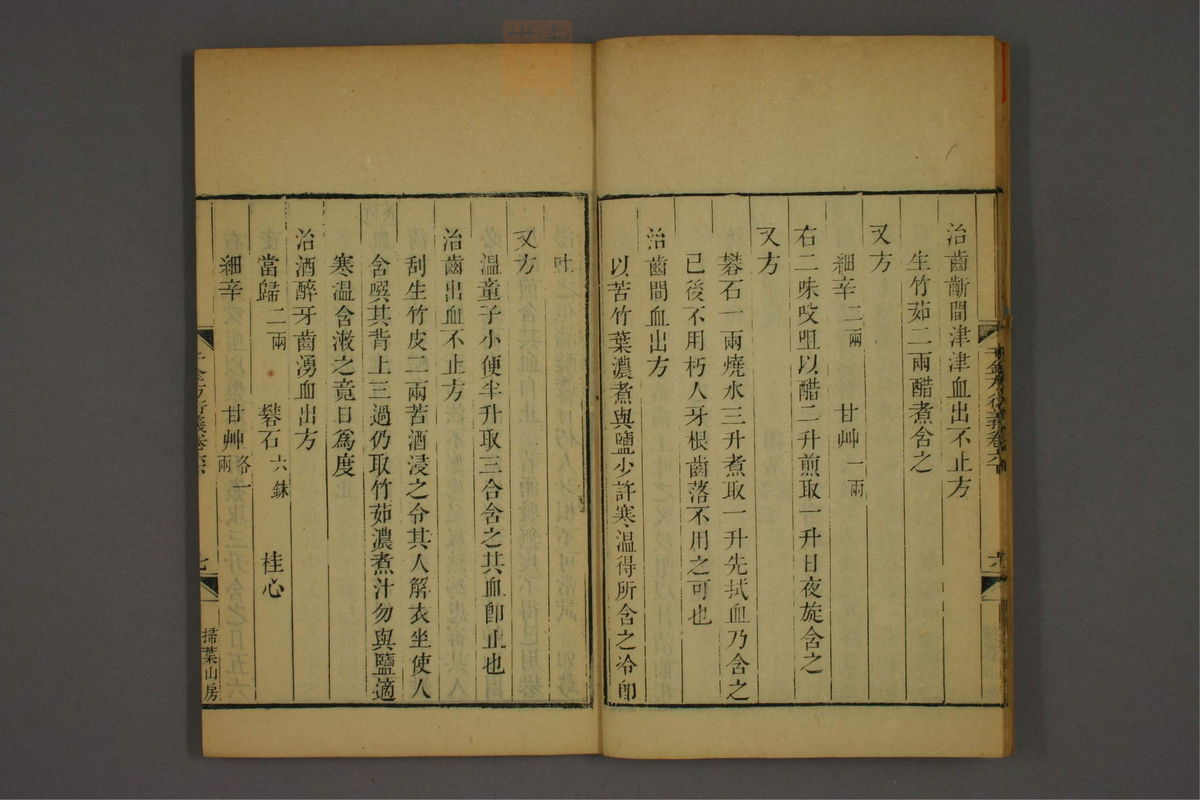 治齒齗間津津血出不止方
生竹茹二兩醋煮含之
又方
細辛二兩 甘艸一兩
右二味㕮咀以醋二升煎取一升日夜旋含之
又方
礬石一兩燒水三升煮取一升先拭血乃含之
已後不用朽人牙根齒落不用之可也
治齒間血出方
以苦竹葉濃煮與鹽少許寒溫得所含之冷即
吐之
又方
溫童子小便半升取三合含之其血即止也
治齒出血不止方
刮生竹皮二兩苦酒浸之令其人解衣坐使人
含噀其背上三過仍取竹茹濃煮汁勿與鹽適
寒溫含漱之竟日爲度
治酒醉牙齒湧血出方
當歸二兩 礬石六銖 桂心
細辛 甘艸各一兩
千金方衍義卷六
六
千金方衍義卷六
七
掃葉山房